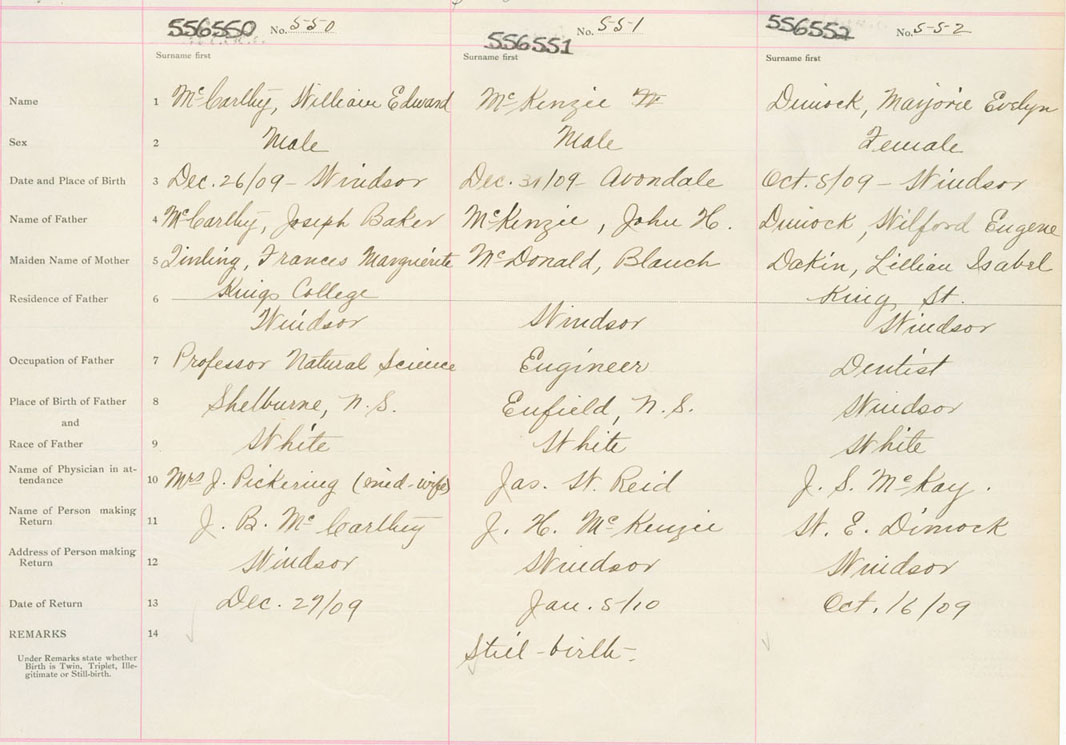 556550 No. 550 556551 No. 551 556552 No. 552
Surname first Surname first Surname first
Name 1 McCarthy, William Edward McKenzie Dimock, Marjorie Evelyn
Sex 2 Male Male Female
Date and Place of Birth 3 Dec. 26/09 - Windsor Dec. 31/09 - Avondale Oct. 5/09 - Windsor
Name of Father 4 McCarthy, Joseph Baker McKenzie, John H. Dimock, Wilford Eugene
Maiden Name of Mother 5 Tinling, Frances Marguerite McDonald, Blanch Dakin, Lillian Isabel
Residence of Father 6 Kings College King St.
Windsor Windsor Windsor
Occupation of Father 7 Professor Natural Science Engineer Dentist
Place of Birth of Father 8 Shelburne, N.S. Enfield, N.S. Windsor
and
Race of Father 9 White White White
Name of Physician in at-
tendance 10 Mrs J. Pickering (mid-wife) Jas. W. Reid J. S. McKay.
Name of Person making
Return 11 J. B. McCarthy J. H. McKenzie W. E. Dimock
Address of Person making
Return 12 Windsor Windsor Windsor
Date of Return 13 Dec. 29/09 Jan. 5/10 Oct. 16/09
REMARKS 14
Still-birth-
Under Remarks state whether
Birth is Twin, Triplet, Ille-
gitimate or Still-birth.